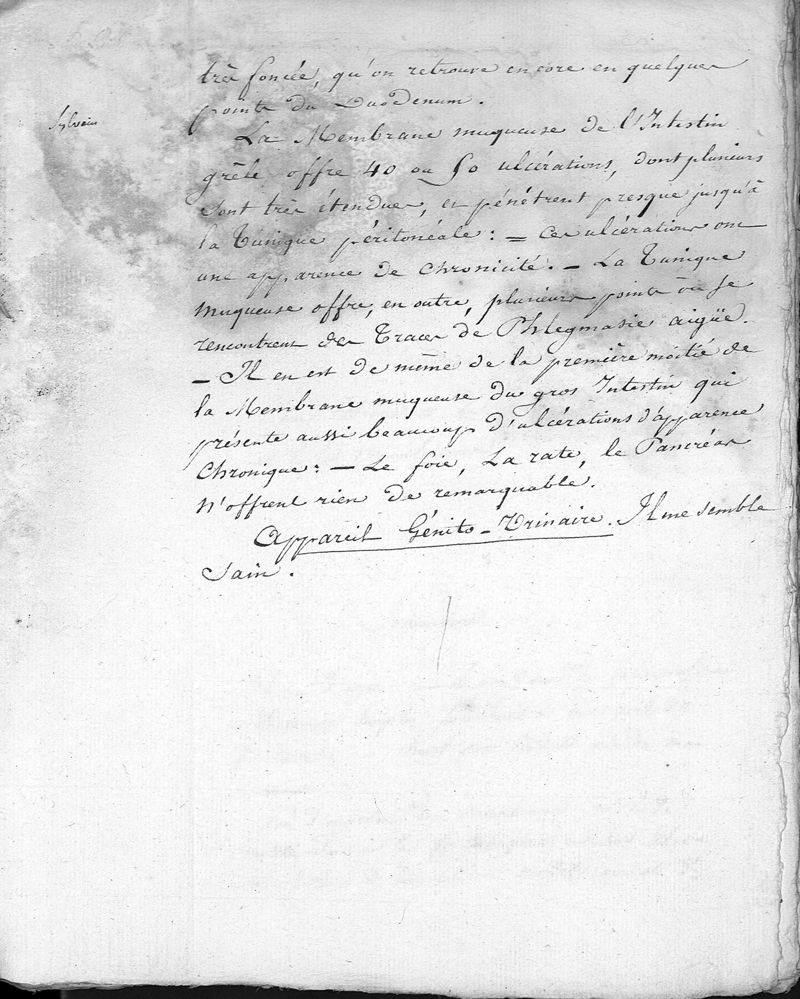 Sylvain
très foncée, qu'on retrouve encore en quelques
points du Duodenum.
La Membrane muqueuse de l'Intestin
grêle offre 40 ou 50 ulcérations, dont plusieurs
sont très étendues, et pénétrent presque jusqu'à
la Tunique péritonéale : = Ces ulcérations ont
une apparence de chronicité. - La Tunique
muqueuse offre, en outre, plusieurs points où se
rencontrent des Traces de Phlegmasie aigüe.
- Il en est de même de la première moitié de
la Membrane muqueuse du gros Intestin qui
présente aussi beaucoup d'ulcérations d'apparence
Chronique : - Le foie, La rate, le Pancréas
n'offrent rien de remarquable.
Appareil Génito-Urinaire. Il me semble
Sain.